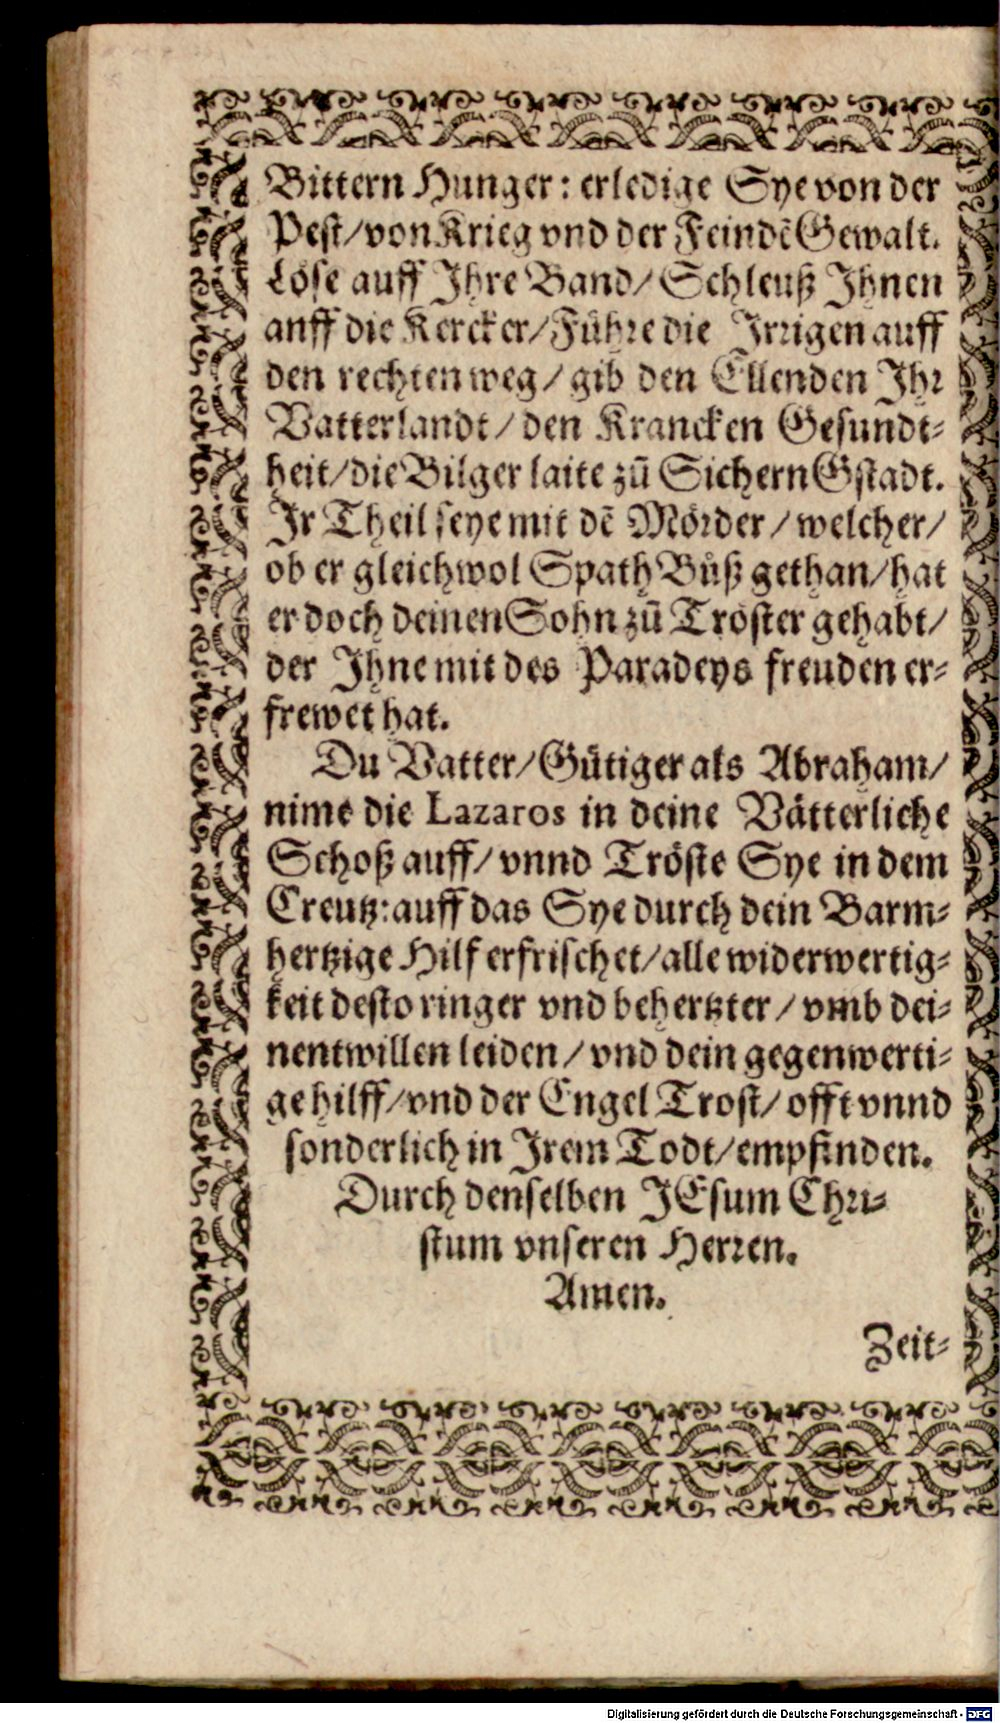 Bittern Hunger: erledige Sye von der
Pest/von Krieg vnd der Feindē Gewalt.
Löse auff Ihre Band/ Schleuß Ihnen
anff die Kercker/Führe die Irrigen auff
den rechten weg/ gib den Ellenden Ihr
Vatterlandt/den Krancken Gesundt-
heit/die Bilger laite zū Sichern Gstadt.
Ir Theil seye mit dē Mörder/welcher/
ob er gleichwol Spath Bůß gethan/hat
er doch deinen Sohn zū Tröster gehabt/
der Ihne mit des Paradeys freuden er-
frewet hat.
Du Vatter/Gütiger als Abraham/
nime die Lazaros in deine Vätterliche
Schoß auff/vnnd Tröste Sye in dem
Creutz: auff das Sye durch dein Barm-
hertzige Hilf erfrischet/alle widerwertig-
keit desto ringer vnd behertzter/vmb dei-
nentwillen leiden/vnd dein gegenwerti-
ge hilff/vnd der Engel Trost/offt vnnd
sonderlich in Irem Todt/empfinden.
Durch denselben JEsum Chri-
stum vnseren Herren.
Amen.
Zeit-
Digitalisierung gefördert durch die Deutsche Forschungsgemeinschaft - DFG